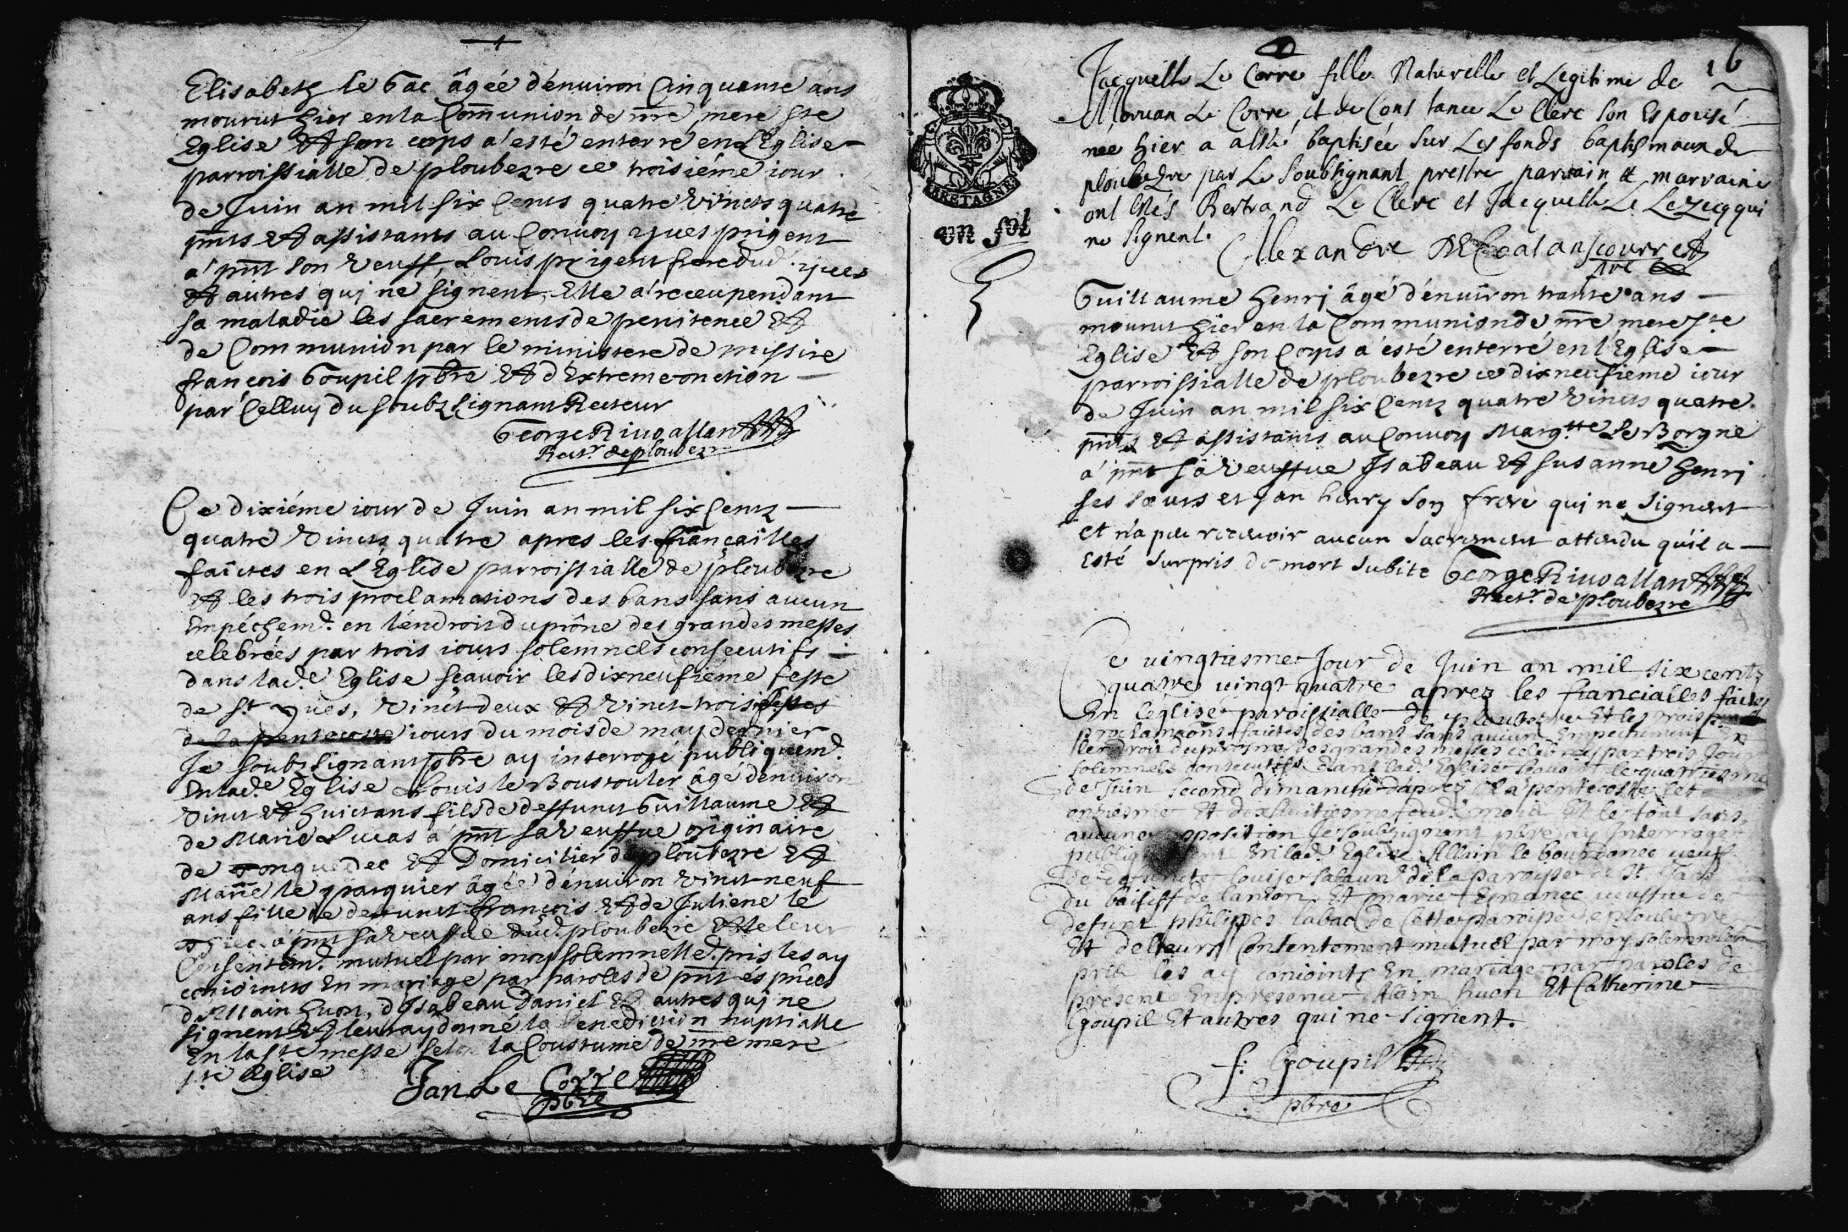 Elisabeth le Gac âgée d'enuiron Cinquante ans
mourut hier en la Com̃union de nr̃e mere Ste
Eglise Et son corps a esté enterré en L'Eglise
parroissialle de ploubezre ce troisiéme iour
de Juin an mil six Cents quatre Vincts quatre
pnts Et assistants au Conuoy yues prigent
a pnt son Veuff, Louis prigent frere dud. yues
Et autres qui ne signent, Elle a receu pendant
sa maladie les sacrements de penitence Et
de Communion par le ministere de missire
francois Goupil pbre Et d'Extreme onction
par Celluy du soubsignant Recteur
George Riuoallan
Rectr. de ploubezre
Ce dixiéme iour de Juin an mil six Cents
quatre Vincts quatre apres les fiançailles
faictes en L'Eglise parroissialle de ploubezre
Et les trois proclamations des bans sans aucun
Empéchemt. en l'endroit du prône des grandes messes
celebrées par trois iours solemnels consecutifs
dans lade. Eglise sçauoir les dixneufiéme feste
de St. yues, Vinct deux Et Vinct-trois
iours du mois de may dernier
Je soubsignant pbre ay interrogé publiquemt.
En lade. Eglise Louis le Bousouler âgé d'enuiron
Vinct Et huict ans fils de deffunct Guillaume Et
de Marie Lucas a pnt sa Veuffue originaire
de Tonquedec Et Domicilier de ploubezre Et
le parquier âgée d'enuiron Vinct neuf
ans fille de deffunct françois Et de Juliene le
a pnt sa Veuffue dud. ploubezre Et leur
Consentemt. mutuel par moy solemnellemt. pris les ay
conioincts En mariage par paroles de pnt es pñces
d'Allain huon, d'Isabeau Daniel Et autres qui ne
signent Et leur ay donné la Benediction nuptialle
En la Ste messe selon la Coustume de nr̃e mere
Ste Eglise
Jan Le Corre
pbre
16
BRETAGNE
un sol
Jacquette Le Corre fille Naturelle et Legitime de
Moruan Le Corre, et de Constance Le Clerc son Espouse
née hier a esté baptisée sur Les fonds baptismaux de
ploubezre par Le Soubsignant prestre parrain et marraine
ont estés Bertrand Le Clerc et Jacquette Le Lezecq qui
ne signent.
Alexandre
Guillaume henri âgé d'enuiron trante ans
mourut hier en la Communion de nr̃e mere Ste
Eglise Et son Corps a esté enterré en l'Eglise
parroissialle de ploubezre ce dixneufieme iour
de Juin an mil six Cents quatre Vincts quatre
pnts Et assistants au Conuoy Margtte Le Borgne
a pnt sa Veuffue Isabeau Et susanne henri
ses sœurs et Jan henry son frere qui ne signent
et n'a peu receuoir aucun sacrement attendu qu'il a
esté surpris de mort subite George Riuoallan
Rectr. de ploubezre
Ce vingtiesme Jour de Juin an mil six cents
quatre vingt quatre aprez les francialles faites
En l'eglise paroissialle de ploubezre Et les trois
proclamãons faites des bans sans aucun Empechement En
l'endroit du prosne des grandes messes celebrées par trois Jours
solemnels consecutifs dans lad. Eglise sauoir le quatriesme
de Juin second dimanche d'aprez la pentecoste let
onziesme Et dixhuitiesme dud. mois Et le tout sans
aucune opposition Je soubsignant pbre ay Interrogé
publiquement En lad. Eglise Allain le bourdonec veuf
de deffuncte Louise salaun de la paroisse de St. Jan
du baisiff de lanion, Et marie veuffue de
defunt philippes labac de Cette paroisse de ploubezre
Et de leurs Contentement mutuel par moy solemnellemt
pris les ay conioints En mariage par paroles de
present En presence Alain huon Et Catherine
Goupil Et autres qui ne signent.
f. Goupil
pbre